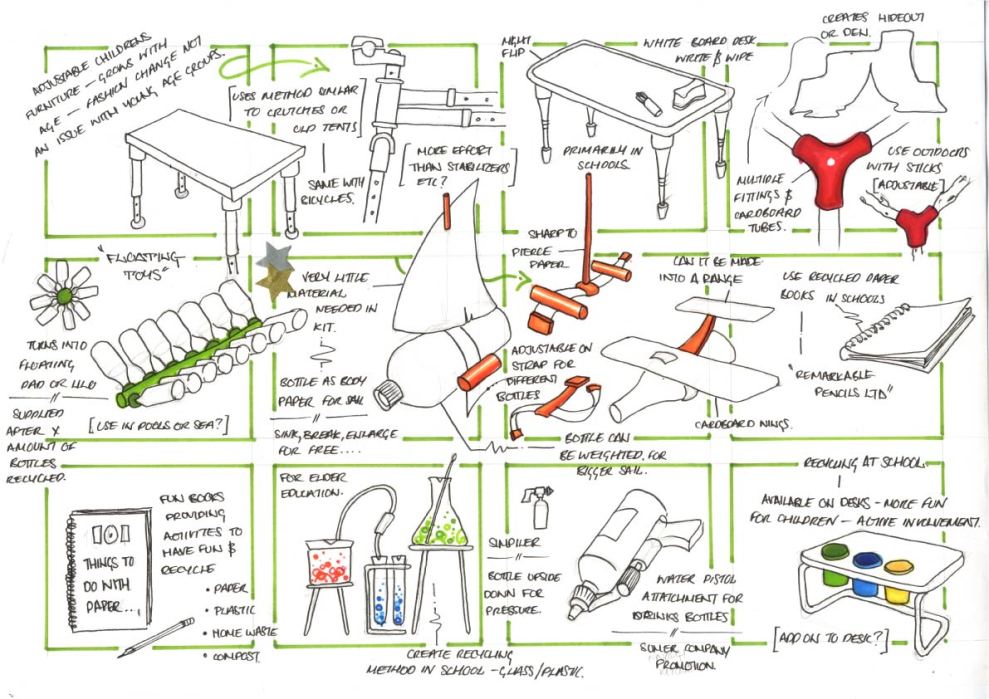 ADJUSTABLE CHILDRENS
FURNITURE - GROWS WITH
AGE - FASHION CHANGE NOT
AN ISSUE WITH YOUNG AGE GROUPS.
[USES METHOD SIMILAR
TO CRUTCHES OR
OLD TENTS]
SAME WITH
BICYCLES.
[MORE EFFORT
THAN STABILIZERS
ETC?]
MIGHT
FLIP
WHITE BOARD DESK
WRITE & WIPE
PRIMARILY IN
SCHOOLS.
CREATES HIDEOUT
OR DEN.
MULTIPLE
FITTINGS &
CARDBOARD
TUBES.
USE OUTDOORS
WITH STICKS
[ADJUSTABLE]
"FLOATING
TOYS"
TURNS INTO
FLOATING
PAD OR LILO
//
SUPPLIED
AFTER X
AMOUNT OF
BOTTLES
RECYCLED.
[USE IN POOLS OR SEA?]
VERY LITTLE
MATERIAL
NEEDED IN
KIT.
BOTTLE AS BODY
PAPER FOR SAIL
//
SINK, BREAK, ENLARGE
FOR FREE....
SHARP TO
PIERCE
PAPER
ADJUSTABLE ON
STRAP FOR
DIFFERENT
BOTTLES
BOTTLE CAN
BE WEIGHTED. FOR
BIGGER SAIL.
CAN IT BE MADE
INTO A RANGE
CARDBOARD WINGS.
USE RECYCLED PAPER
BOOKS IN SCHOOLS
"REMARKABLE
PENCILS LTD"
THINGS TO
DO WITH
PAPER...
FUN BOOKS
PROVIDING
ACTIVITIES TO
HAVE FUN &
RECYCLE
• PAPER
• PLASTIC
• HOME WASTE
• COMPOST.
FOR ELDER
EDUCATION.
CREATE RECYCLING
METHOD IN SCHOOL - GLASS/PLASTIC.
SIMPLER
//
BOTTLE UPSIDE
DOWN FOR
PRESSURE.
WATER PISTOL
ATTATCHMENT FOR
DRINKS BOTTLES
//
SUMER COMPANY
PROMOTION.
RECYCLING AT SCHOOL.
AVAILABLE ON DESKS - MORE FUN
FOR CHILDREN - ACTIVE INVOLVEMENT.
[ADD ON TO DESK?]